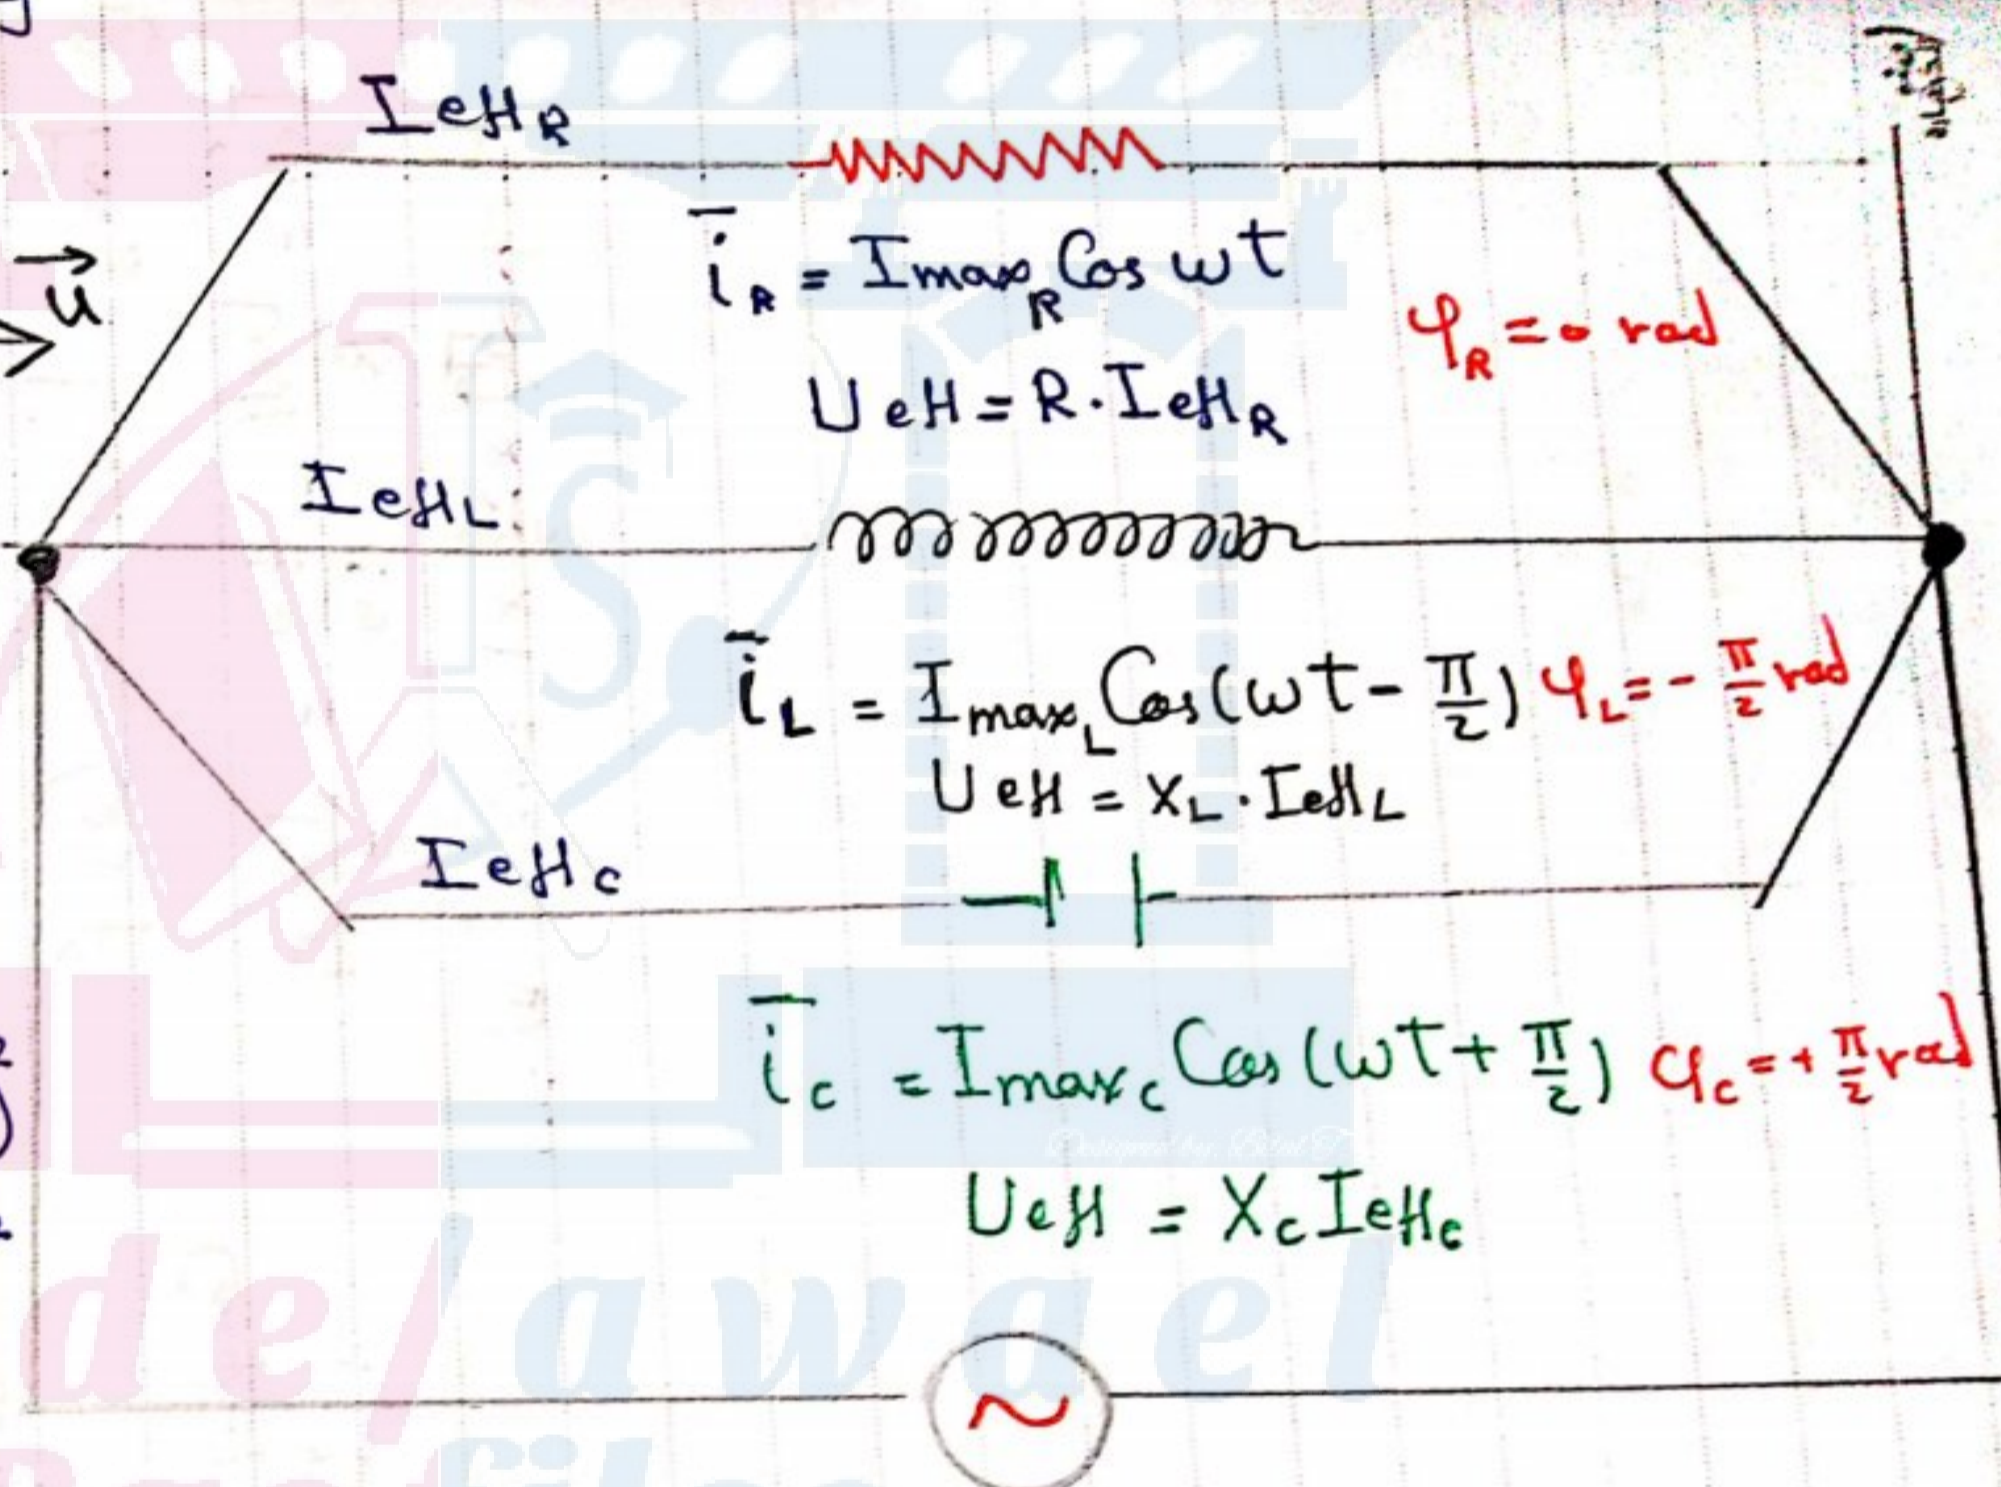 I eff R
i̅_R = I max_R Cos ωt
φ_R = 0 rad
→
u
U eff = R . I eff_R
I eff L
i̅_L = I max_L Cos(ωt - π/2) φ_L = - π/2 rad
U eff = X_L . I eff_L
I eff c
i̅_c = I max_c Cos(ωt + π/2) φ_c = + π/2 rad
Designed by:
U eff = X_c I eff_c
de/awael
~